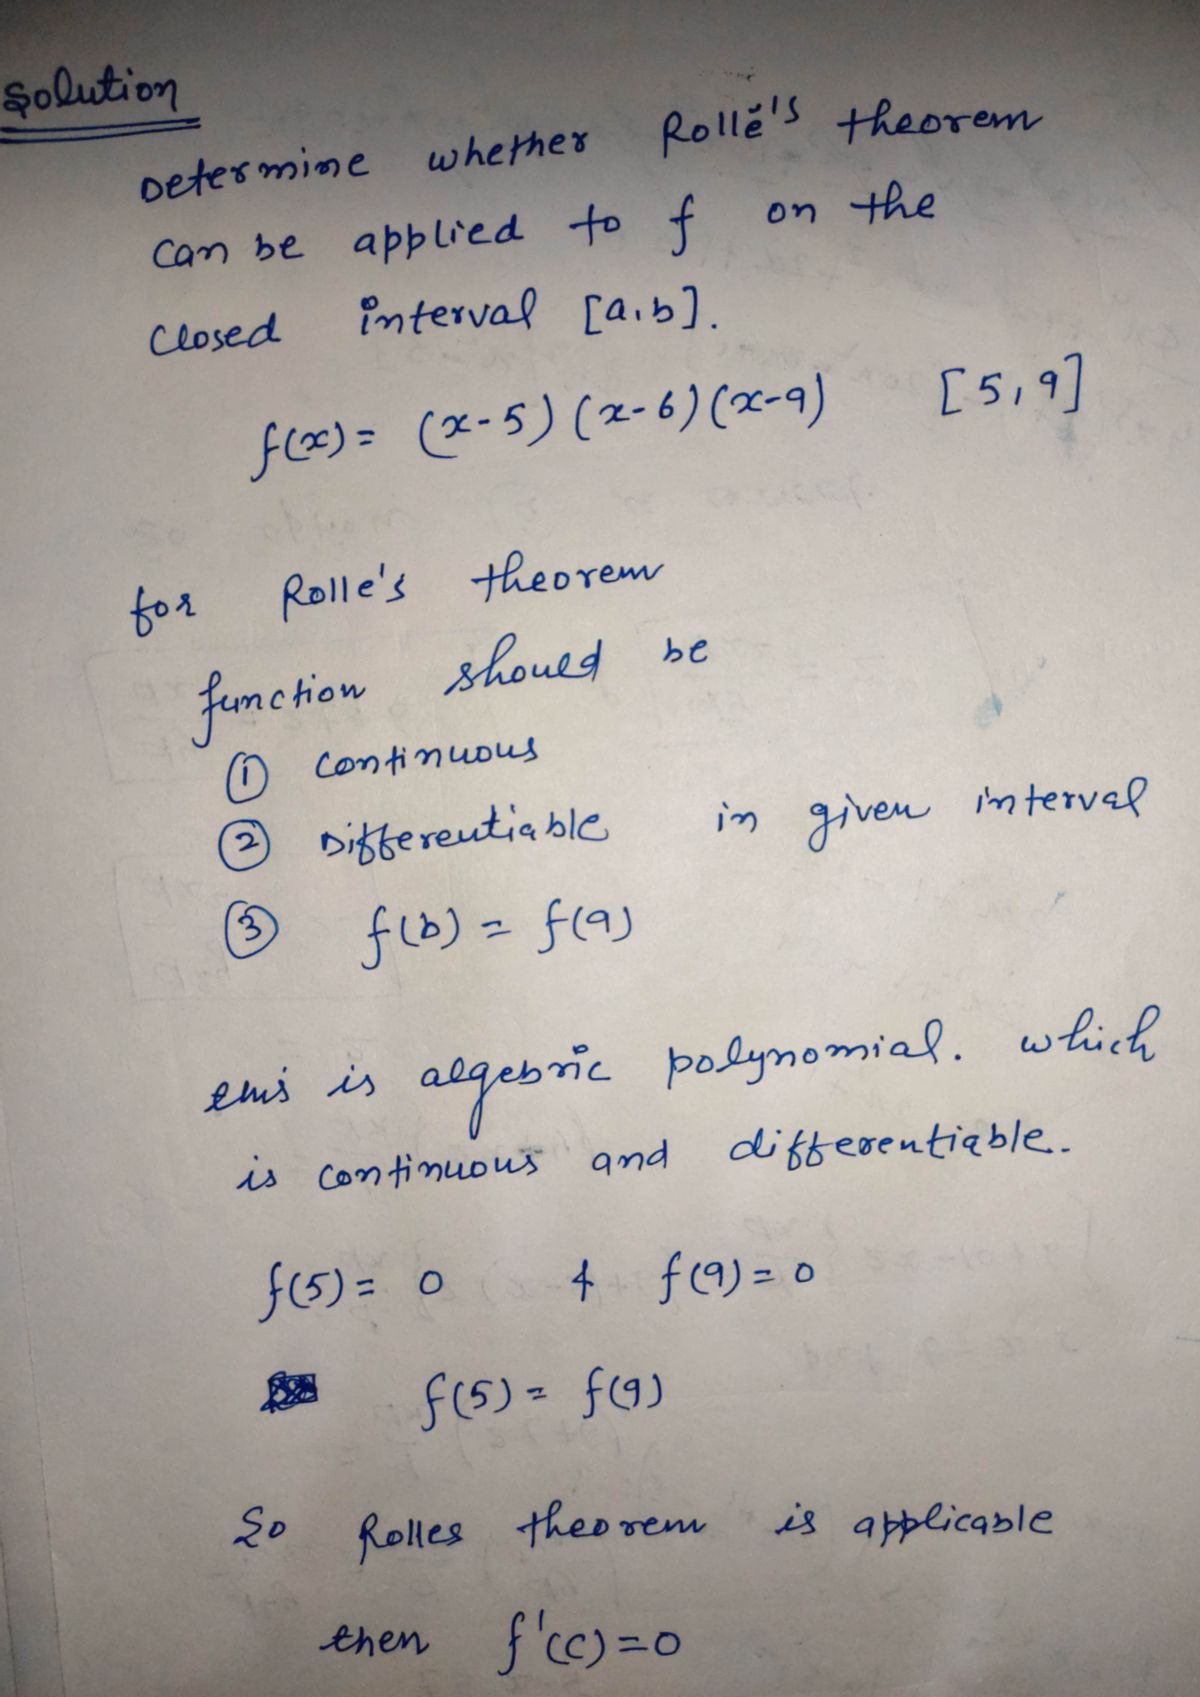 Solution
Determine whether Rolle's theorem
can be applied to f on the
closed interval [a,b].
f(x) = (x-5)(x-6)(x-9) [5,9]
for Rolle's theorem
function should be
① continuous
② Differentiable in given interval
③ f(b) = f(a)
this is algebric polynomial. which
is continuous and differentiable.
f(5) = 0 & f(9) = 0
f(5) = f(9)
So Rolles theorem is applicable
then f'(c) = 0